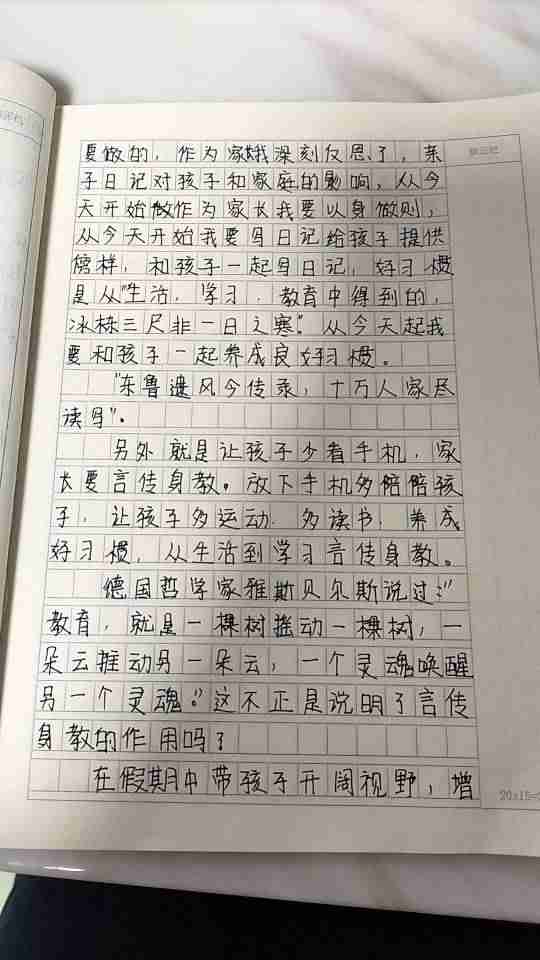 要做的，作为家长我深刻反思了，亲
子日记对孩子和家庭的影响，从今
天开始做作为家长我要以身做则，
从今天开始我要写日记给孩子提供
榜样，和孩子一起写日记，好习惯
是从"生活，学习，教育中得到的，
冰栋三尺非一日之寒"。从今天起我
要和孩子一起养成良好习惯。
"东鲁遗风今传承，十万人家尽
读写"。
另外就是让孩子少看手机，家
长要言传身教。放下手机多陪陪孩
子，让孩子多运动，多读书，养成
好习惯，从生活到学习言传身教。
德国哲学家雅斯贝尔斯说过："
教育，就是一棵树摇动一棵树，一
朵云推动另一朵云，一个灵魂唤醒
另一个灵魂。"这不正是说明了言传
身教的作用吗？
在假期中带孩子开阔视野，增
20x15=